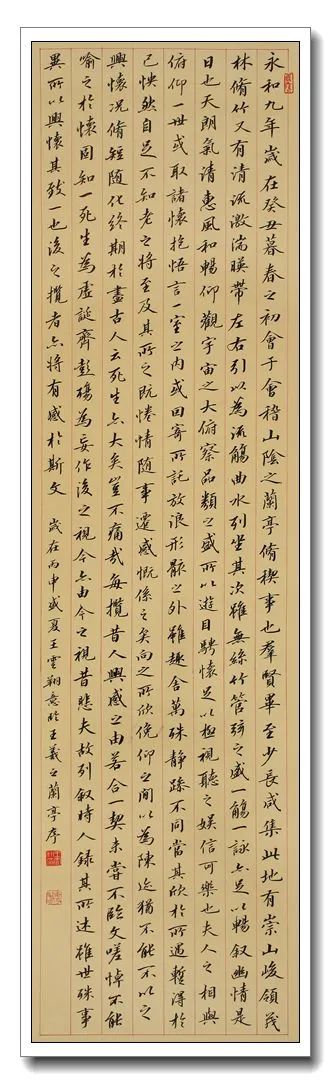 永和九年歲在癸丑暮春之初會于會稽山陰之蘭亭脩稧事也羣賢畢至少長咸集此地有崇山峻領茂
林脩竹又有清流激湍暎帶左右引以為流觴曲水列坐其次雖無絲竹管弦之盛一觴一詠亦足以暢叙幽情是
日也天朗氣清惠風和暢仰觀宇宙之大俯察品類之盛所以遊目騁懷足以極視聽之娛信可樂也夫人之相與
俯仰一世或取諸懷抱悟言一室之內或因寄所託放浪形骸之外雖趣舍萬殊靜躁不同當其欣於所遇暫得於
己怏然自足不知老之將至及其所之既惓情隨事遷感慨係之矣向之所欣俛仰之間以為陳迹猶不能不以之
興懷況脩短隨化終期於盡古人云死生亦大矣豈不痛哉每攬昔人興感之由若合一契未嘗不臨文嗟悼不能
喻之於懷固知一死生為虛誕齊彭殤為妄作後之視今亦由今之視昔悲夫故列叙時人錄其所述雖世殊事
異所以興懷其致一也後之攬者亦將有感於斯文 歲在丙申盛夏王雲翔意臨王羲之蘭亭序